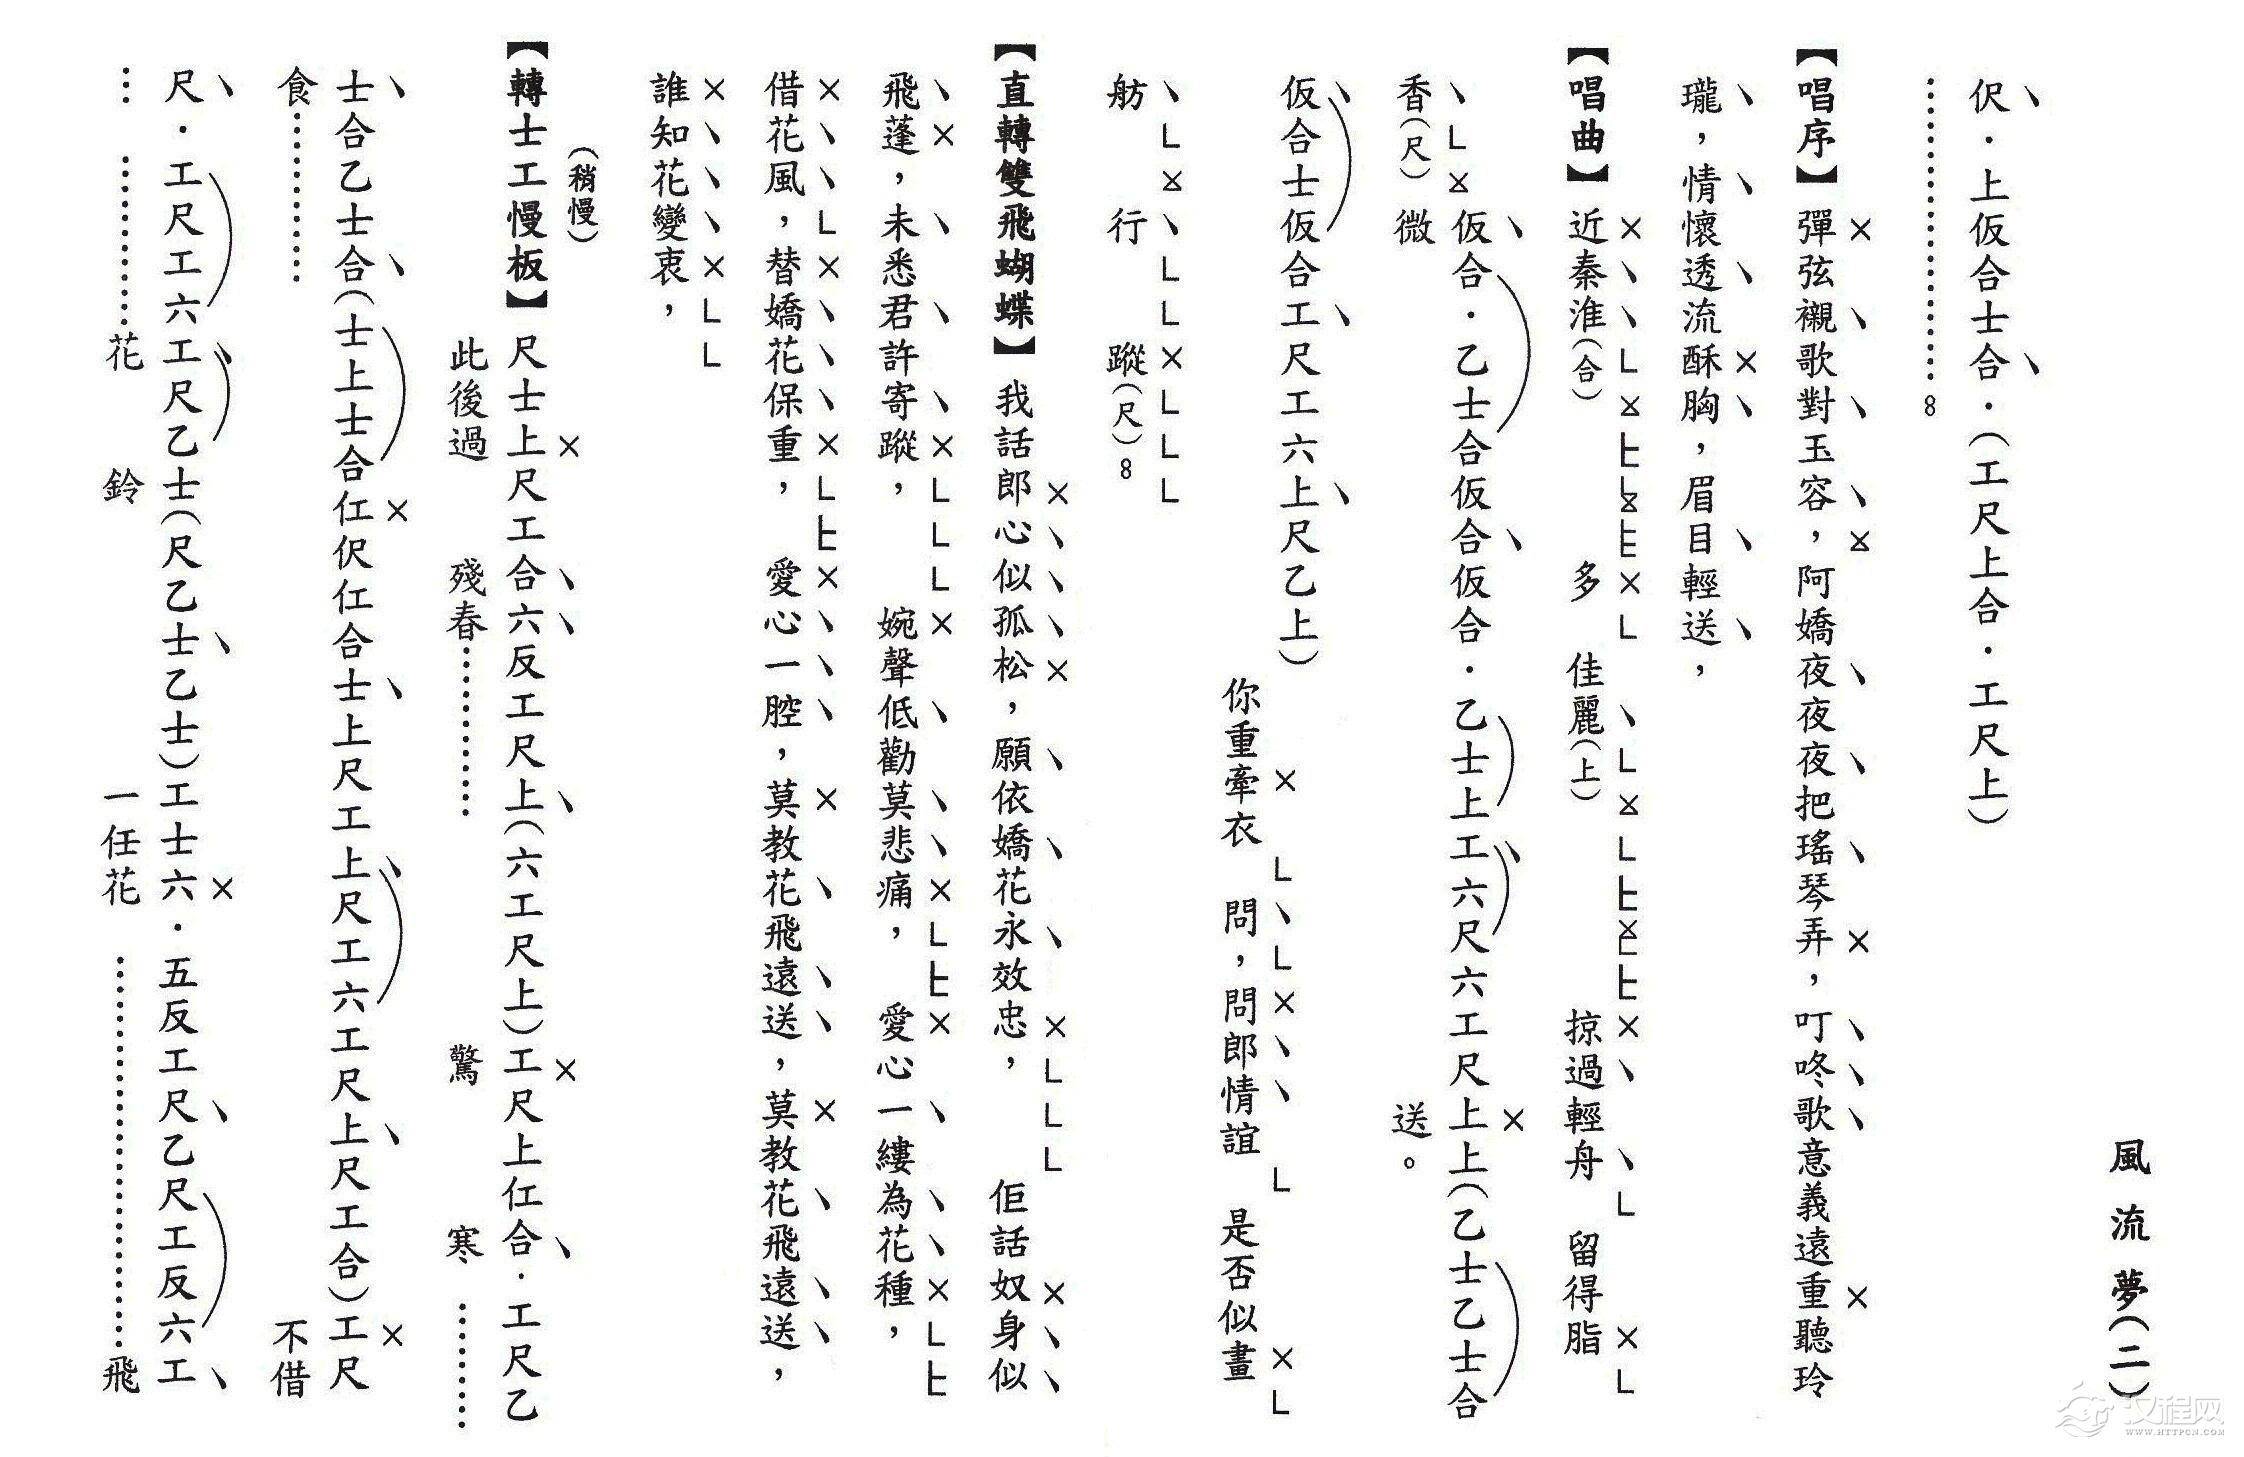 風流夢(二)
伬．上仮合士合．(工尺上合．工尺上)
…………………8
【唱序】彈弦襯歌對玉容，阿嬌夜夜夜把瑤琴弄，叮咚歌意義遠重聽玲
瓏，情懷透流酥胸，眉目輕送，
【唱曲】近秦淮(合) 多 佳麗(上) 掠過輕舟 留得脂
仮合．乙士合仮合仮合．乙士上工六尺六工尺上上(乙士乙士合
香(尺)微 送。
仮合士仮合工尺工六上尺乙上)
你重牽衣 問，問郎情誼 是否似畫
舫 行 蹤(尺)8
【直轉雙飛蝴蝶】我話郎心似孤松，願依嬌花永效忠， 佢話奴身似
飛蓬，未悉君許寄蹤， 婉聲低勸莫悲痛， 愛心一縷為花種，
借花風，替嬌花保重， 愛心一腔，莫教花飛遠送，莫教花飛遠送，
誰知花變衷，
(稍慢)
【轉士工慢板】尺士上尺工合六反工尺上(六工尺上)工尺上仜合．工尺乙
此後過 殘春………… 驚 寒………
士合乙士合(士上士合仜伬仜合士上尺工上尺工六工尺上尺工合)工尺
食………… 不借
尺．工尺工六工尺乙士(尺乙士乙士)工士六．五反工尺乙尺工反六工
… …………花 鈴 一任花 …………………………飛
汉程网
WWW.HTTPCN.COM